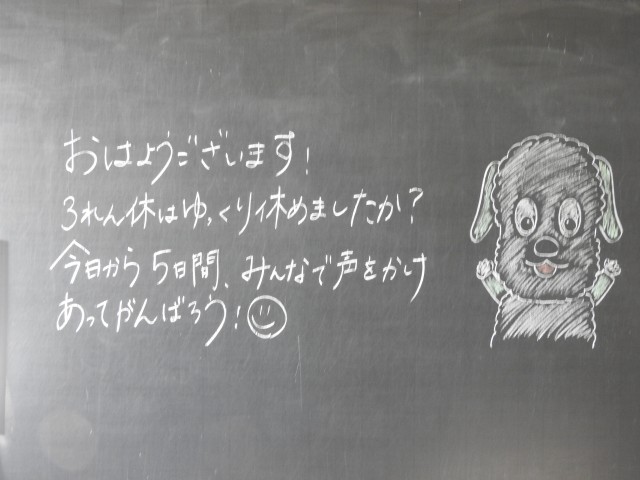 おはようございます!
3れん休はゆっくり休めましたか?
今日から5日間、みんなで声をかけ
あってがんばろう!